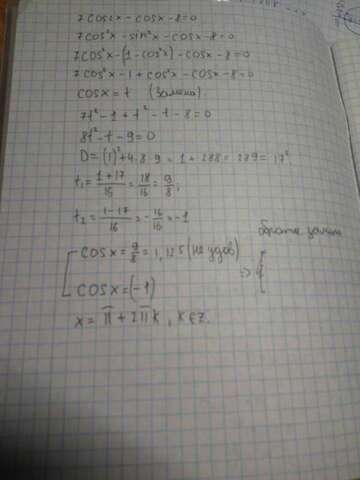 7cos2x - cosx - 8 = 0
7cos²x - sin²x - cosx - 8 = 0
7cos²x - (1 - cos²x) - cosx - 8 = 0
7cos²x - 1 + cos²x - cosx - 8 = 0
cosx = t (Замена).
7t² - 1 + t² - t - 8 = 0
8t² - t - 9 = 0
D = (1)² + 4·8·9 = 1 + 288 = 289 = 17²
t₁ = (1+17)/16 = 18/16 = 9/8;
t₂ = (1-17)/16 = -16/16 = -1
обратн замена
[ cosx = 9/8 = 1,125 (не удов)
cosx = (-1)
x = π + 2πk, k∈z.